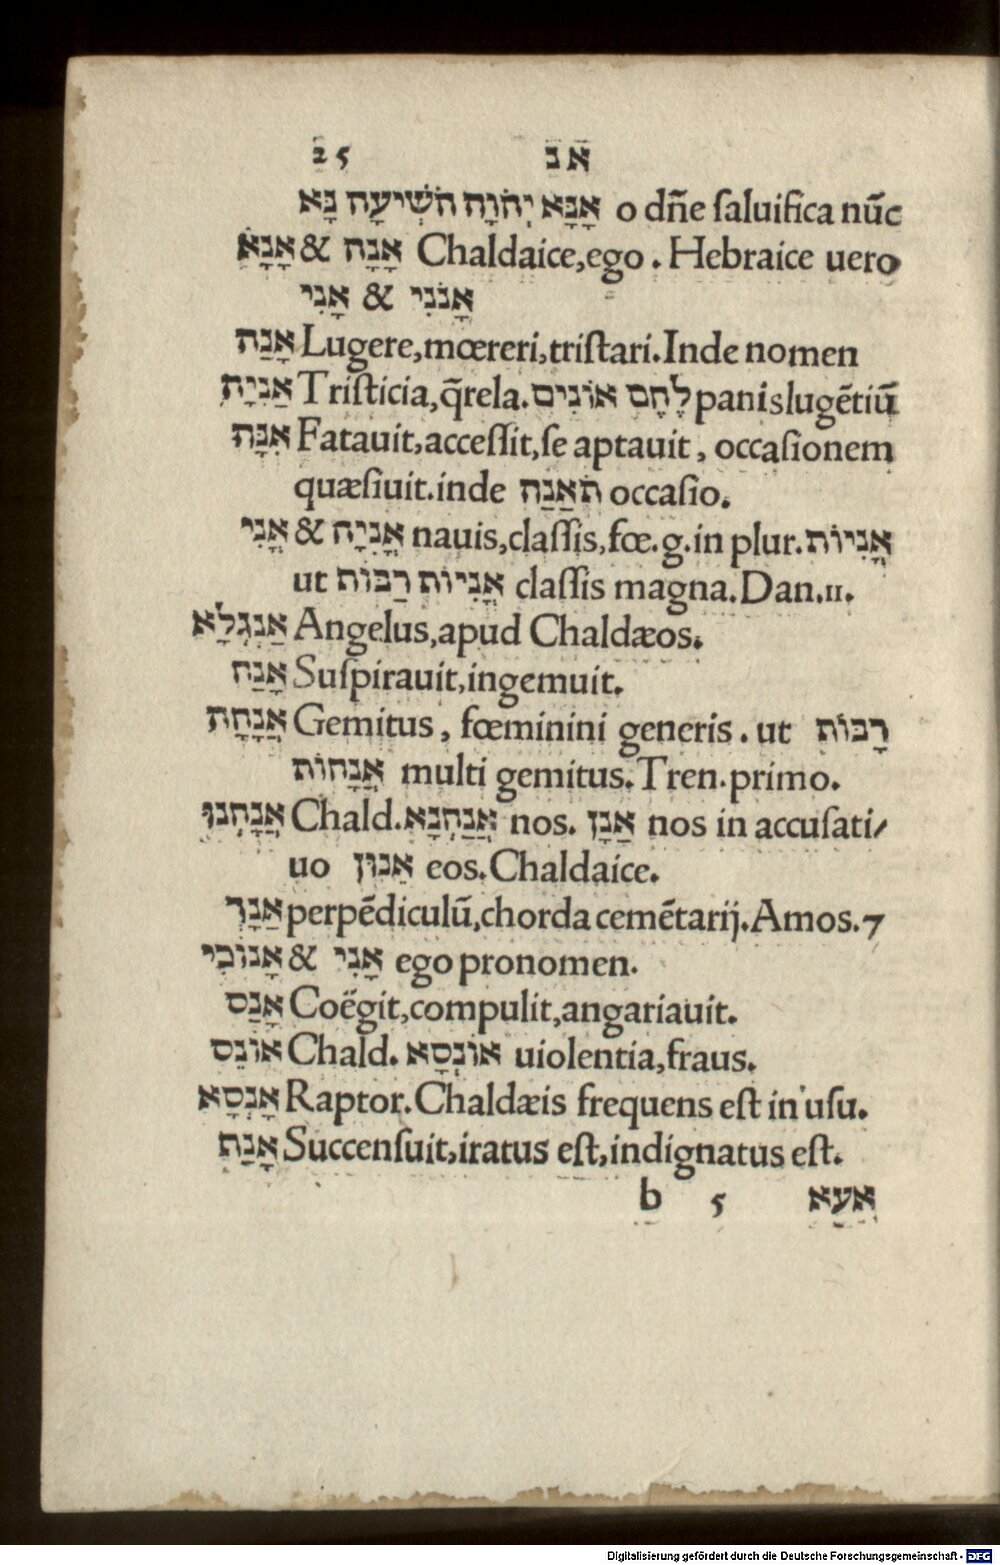 25 אנ
אָנָּא יְהֹוָה הֹשִׁיעָה נָּא o dn̄e ſaluifica nūc
אֲנָא & אֲנָה Chaldaice,ego. Hebraice uero
אָנֹנִי & אֲנִי
אָנַה Lugere,mœreri,triſtari.Inde nomen
אַנְיָה Triſticia,q̄rela. לֶחֶם אוֹנִים panis lugētiū
אִנָּה Fatauit,acceſſit,ſe aptauit, occaſionem
quæſiuit.inde תֹאַנַה occaſio.
אֳנִי & אֳנִיָה nauis,claſſis,fœ.g.in plur. אֳנִיוֹת
ut אֳנִיוֹת רַבּוֹת claſſis magna.Dan.11.
אַנְגְלָא Angelus,apud Chaldæos.
אָנַח Suſpirauit,ingemuit.
אֲנָחָה Gemitus, fœminini generis. ut רָבּוֹת
אֲנָחוֹת multi gemitus.Tren.primo.
אֲנָחְנוּ Chald. אֲנַחְנָא nos. אַנָן nos in accuſati/
uo אִנוּן eos.Chaldaice.
אֲנָךְ perpēdiculū,chorda cemētarij.Amos.7
אָנוֹכִי & אֲנִי ego pronomen.
אָנַס Coëgit,compulit,angariauit.
אוֹנֵס Chald. אוֹנְסָא uiolentia,fraus.
אָנְסָא Raptor.Chaldæis frequens eſt in uſu.
אָנַף Succenſuit,iratus eſt,indignatus eſt.
b 5 אֲעָא
Digitalisierung gefördert durch die Deutsche Forschungsgemeinschaft - DFG